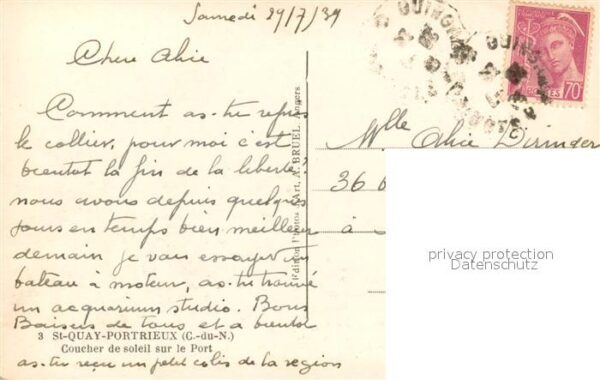 Samedi 29/7/39
Chère Alice
Comment as-tu repris
le collier, pour moi c'est
bientot la fin de la liberté.
nous avons depuis quelques
jours un temps bien meilleur
demain je vais essayer un
bateau à moteur, as-tu trouvé
un acquarium studio. Bons
Baisers de tous et a bientôt
3 St-QUAY-PORTRIEUX (C.-du-N.)
Coucher de soleil sur le Port
as-tu reçu un petit colis de la région
Edition Photos d'Art, A. BRUEL, Angers
GUINGAMP
POSTES 70c
Mlle Alice
36
à
privacy protection
Datenschutz